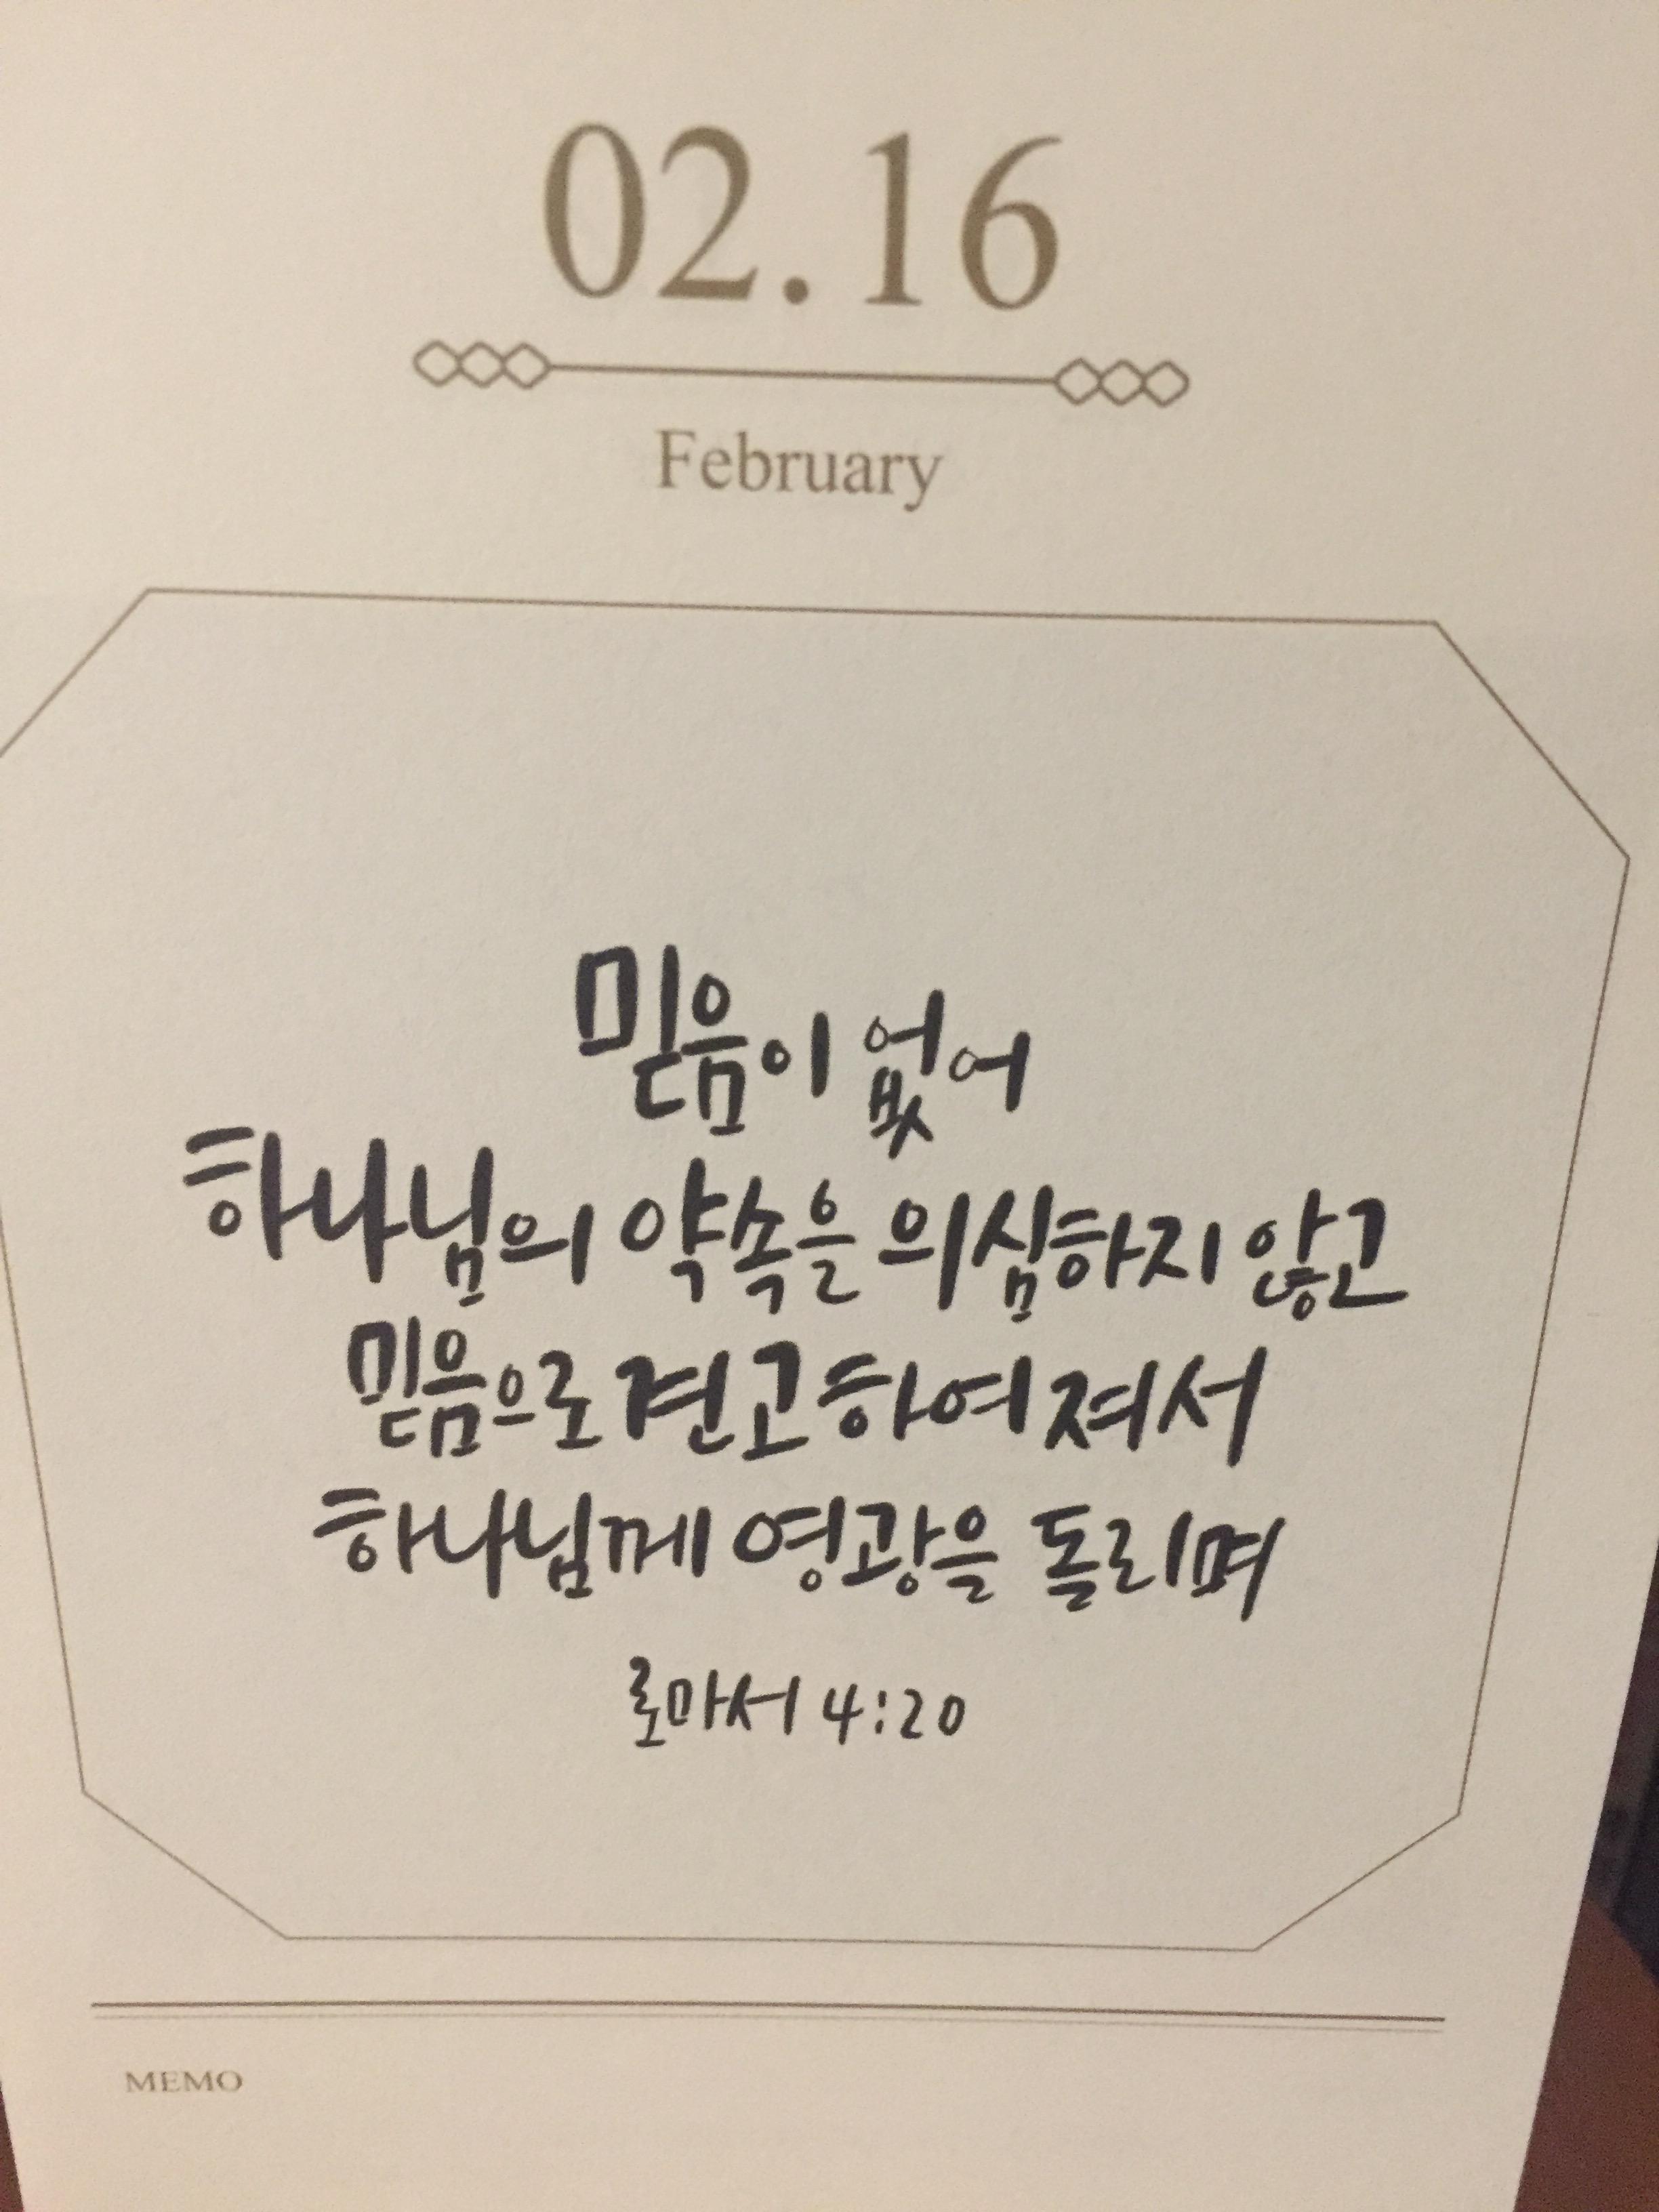 02.16
February
믿음이 없어
하나님의 약속을 의심하지 않고
믿음으로 견고하여져서
하나님께 영광을 돌리며
로마서 4:20
MEMO